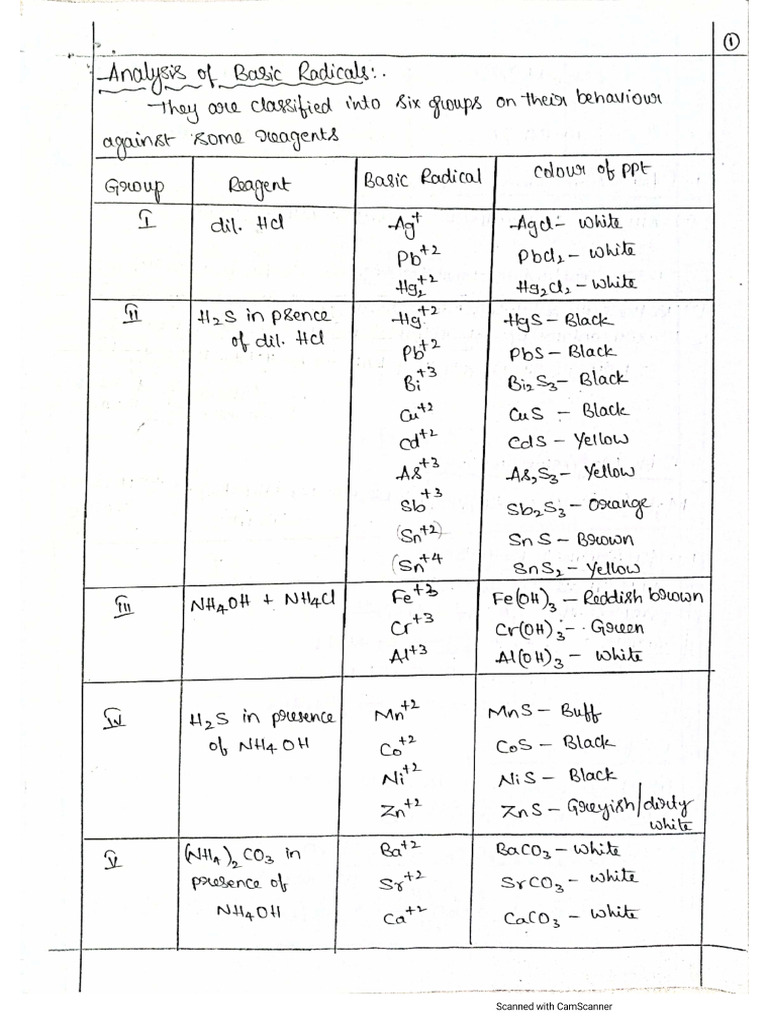 ①
Analysis of Basic Radicals:.
They are classified into six groups on their behaviour
against some reagents
Group Reagent Basic Radical Colour of ppt
I dil. HCl Ag⁺ AgCl - White
Pb⁺² PbCl₂ - White
Hg₂⁺² Hg₂Cl₂ - White
II H₂S in psence Hg⁺² HgS - Black
of dil. HCl Pb⁺² PbS - Black
Bi⁺³ Bi₂S₃ - Black
Cu⁺² CuS - Black
Cd⁺² CdS - Yellow
As⁺³ As₂S₃ - Yellow
Sb⁺³ Sb₂S₃ - Orange
(Sn⁺²) SnS - Brown
(Sn⁺⁴ SnS₂ - Yellow
III NH₄OH + NH₄Cl Fe⁺³ Fe(OH)₃ - Reddish brown
Cr⁺³ Cr(OH)₃ - Green
Al⁺³ Al(OH)₃ - White
IV H₂S in presence Mn⁺² MnS - Buff
of NH₄OH Co⁺² CoS - Black
Ni⁺² NiS - Black
Zn⁺² ZnS - Greyish/dirty
white
V (NH₄)₂CO₃ in Ba⁺² BaCO₃ - White
presence of Sr⁺² SrCO₃ - White
NH₄OH Ca⁺² CaCO₃ - White
Scanned with CamScanner